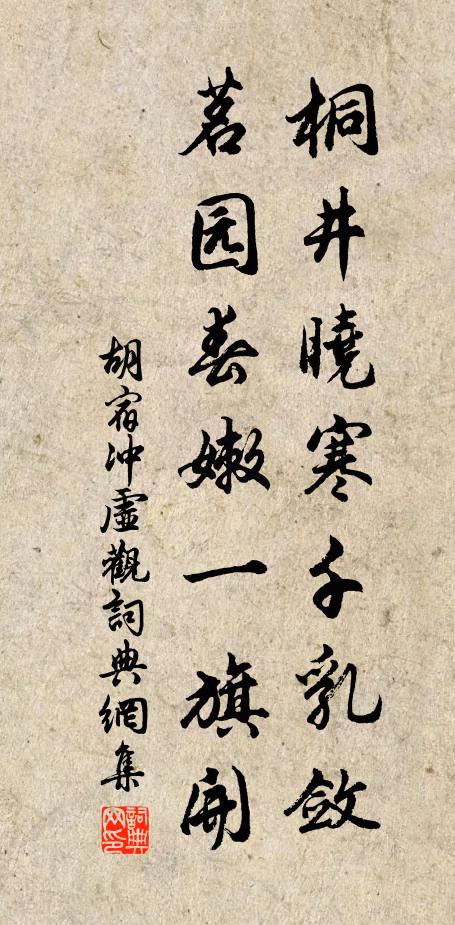 桐井曉寒千乳斂
茗园春嫩一旗開
胡宿冲虛觀詞典網集
詞典网印